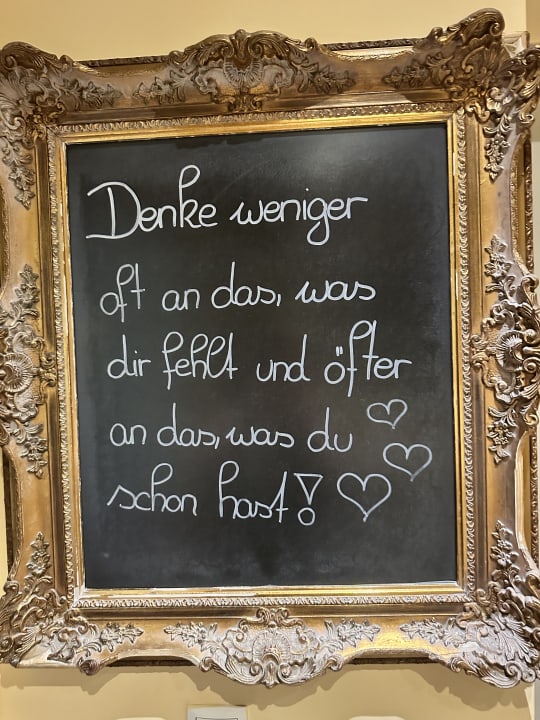 Denke weniger
oft an das, was
dir fehlt und öfter
an das, was du
schon hast!